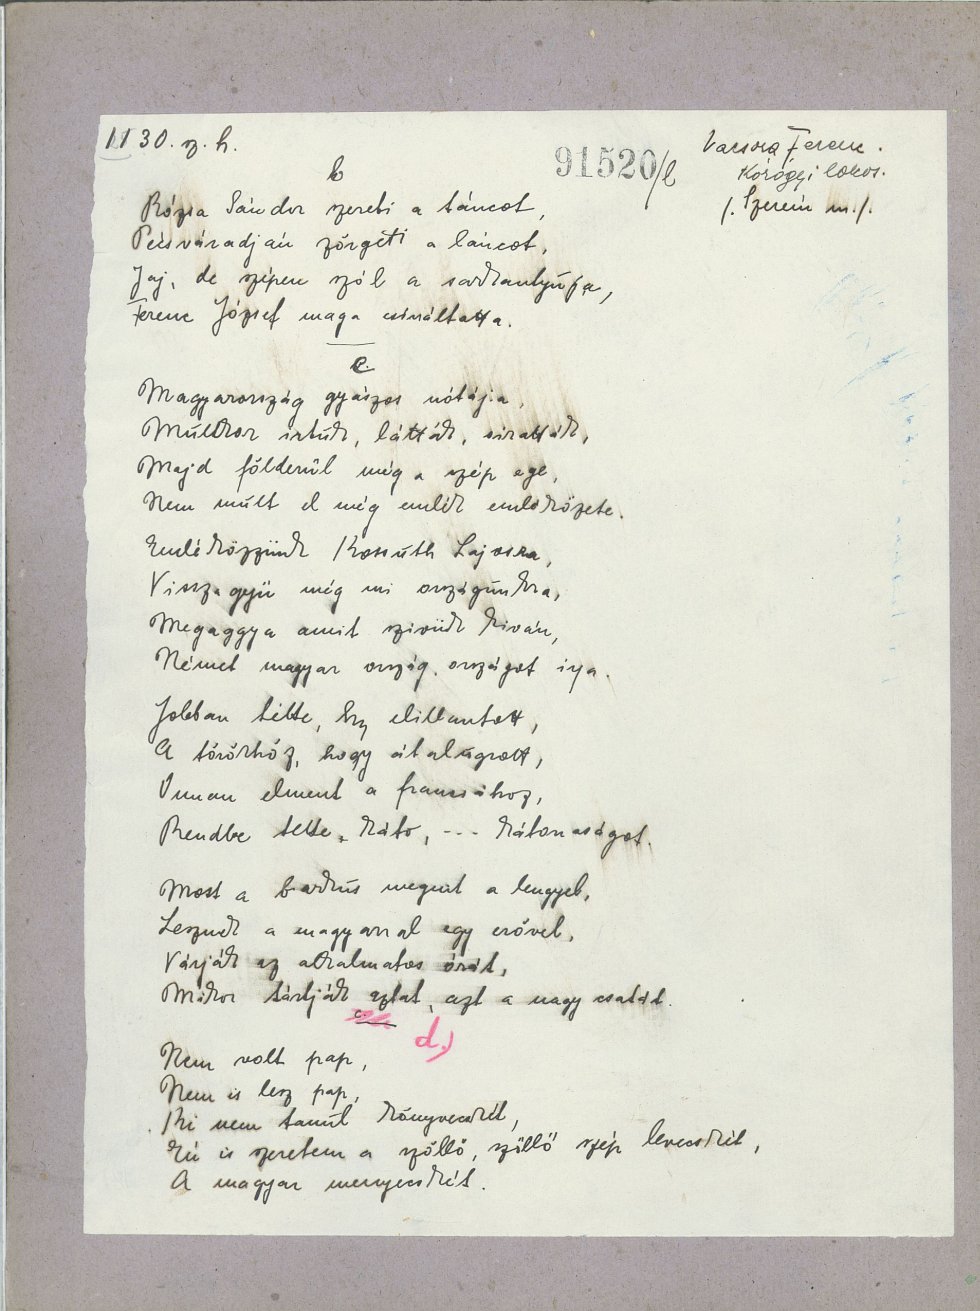 1130. sz. h.
91520/b
Varsoza Ferenc.
Kórógyi lakos.
/. Szerém m./.
b
Rózsa Sándor szereti a táncot,
Pécsváradján zörgeti a láncot,
Jaj, de szépen szól a sarkantyúja,
Ferenc József maga csináltatta.
c.
Magyarország gyászos nótája,
Múltkor irtuk, látták, siratták,
Majd földerül még a szép ege,
Nem múlt el még emlék emléközete.
Emléközzünk Kossuth Lajosra,
Vissza gyü még mi országunkra,
Megaggya amit szivük kiván,
Német magyar ország országot irja.
Jobban tétte, elillantott,
A törökhöz, hogy átalugrott,
Onnan elment a franciához,
Rendbe tette, káto, --- kátonaságot.
Most a markús megent a lengyel,
Lesznek a magyarral egy erővel,
Várják az alkalmatos órát,
Mikor tártják aztat, azt a nagy csatát.
d.)
Nem volt pap,
Nem is lesz pap,
Ki nem tanúl könyvecskét,
Én is szeretem a szőllő, szőllő szép levecskét,
A magyar menyecskét.